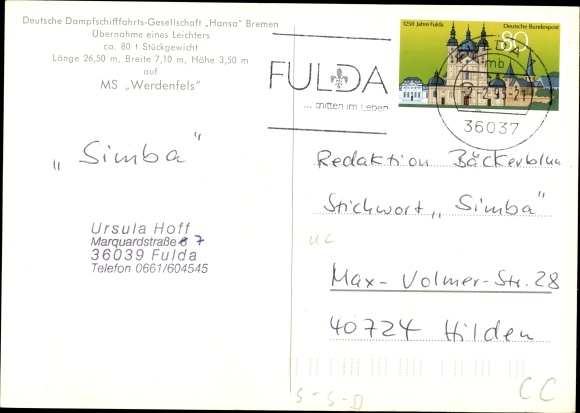 Deutsche Dampfschifffahrts-Gesellschaft „Hansa" Bremen
Übernahme eines Leichters
ca. 80 t Stückgewicht
Länge 26,50 m, Breite 7,10 m, Höhe 3,50 m
auf
MS „Werdenfels"
1250 Jahre Fulda
Deutsche Bundespost
80
FULDA
... mitten im Leben
36037
„Simba"
Ursula Hoff
Marquardstraße 7
36039 Fulda
Telefon 0661/604545
Redaktion Bäckerblum
Stichwort „Simba"
Max-Volmer-Str. 28
40724 Hilden
S-S-D
CC